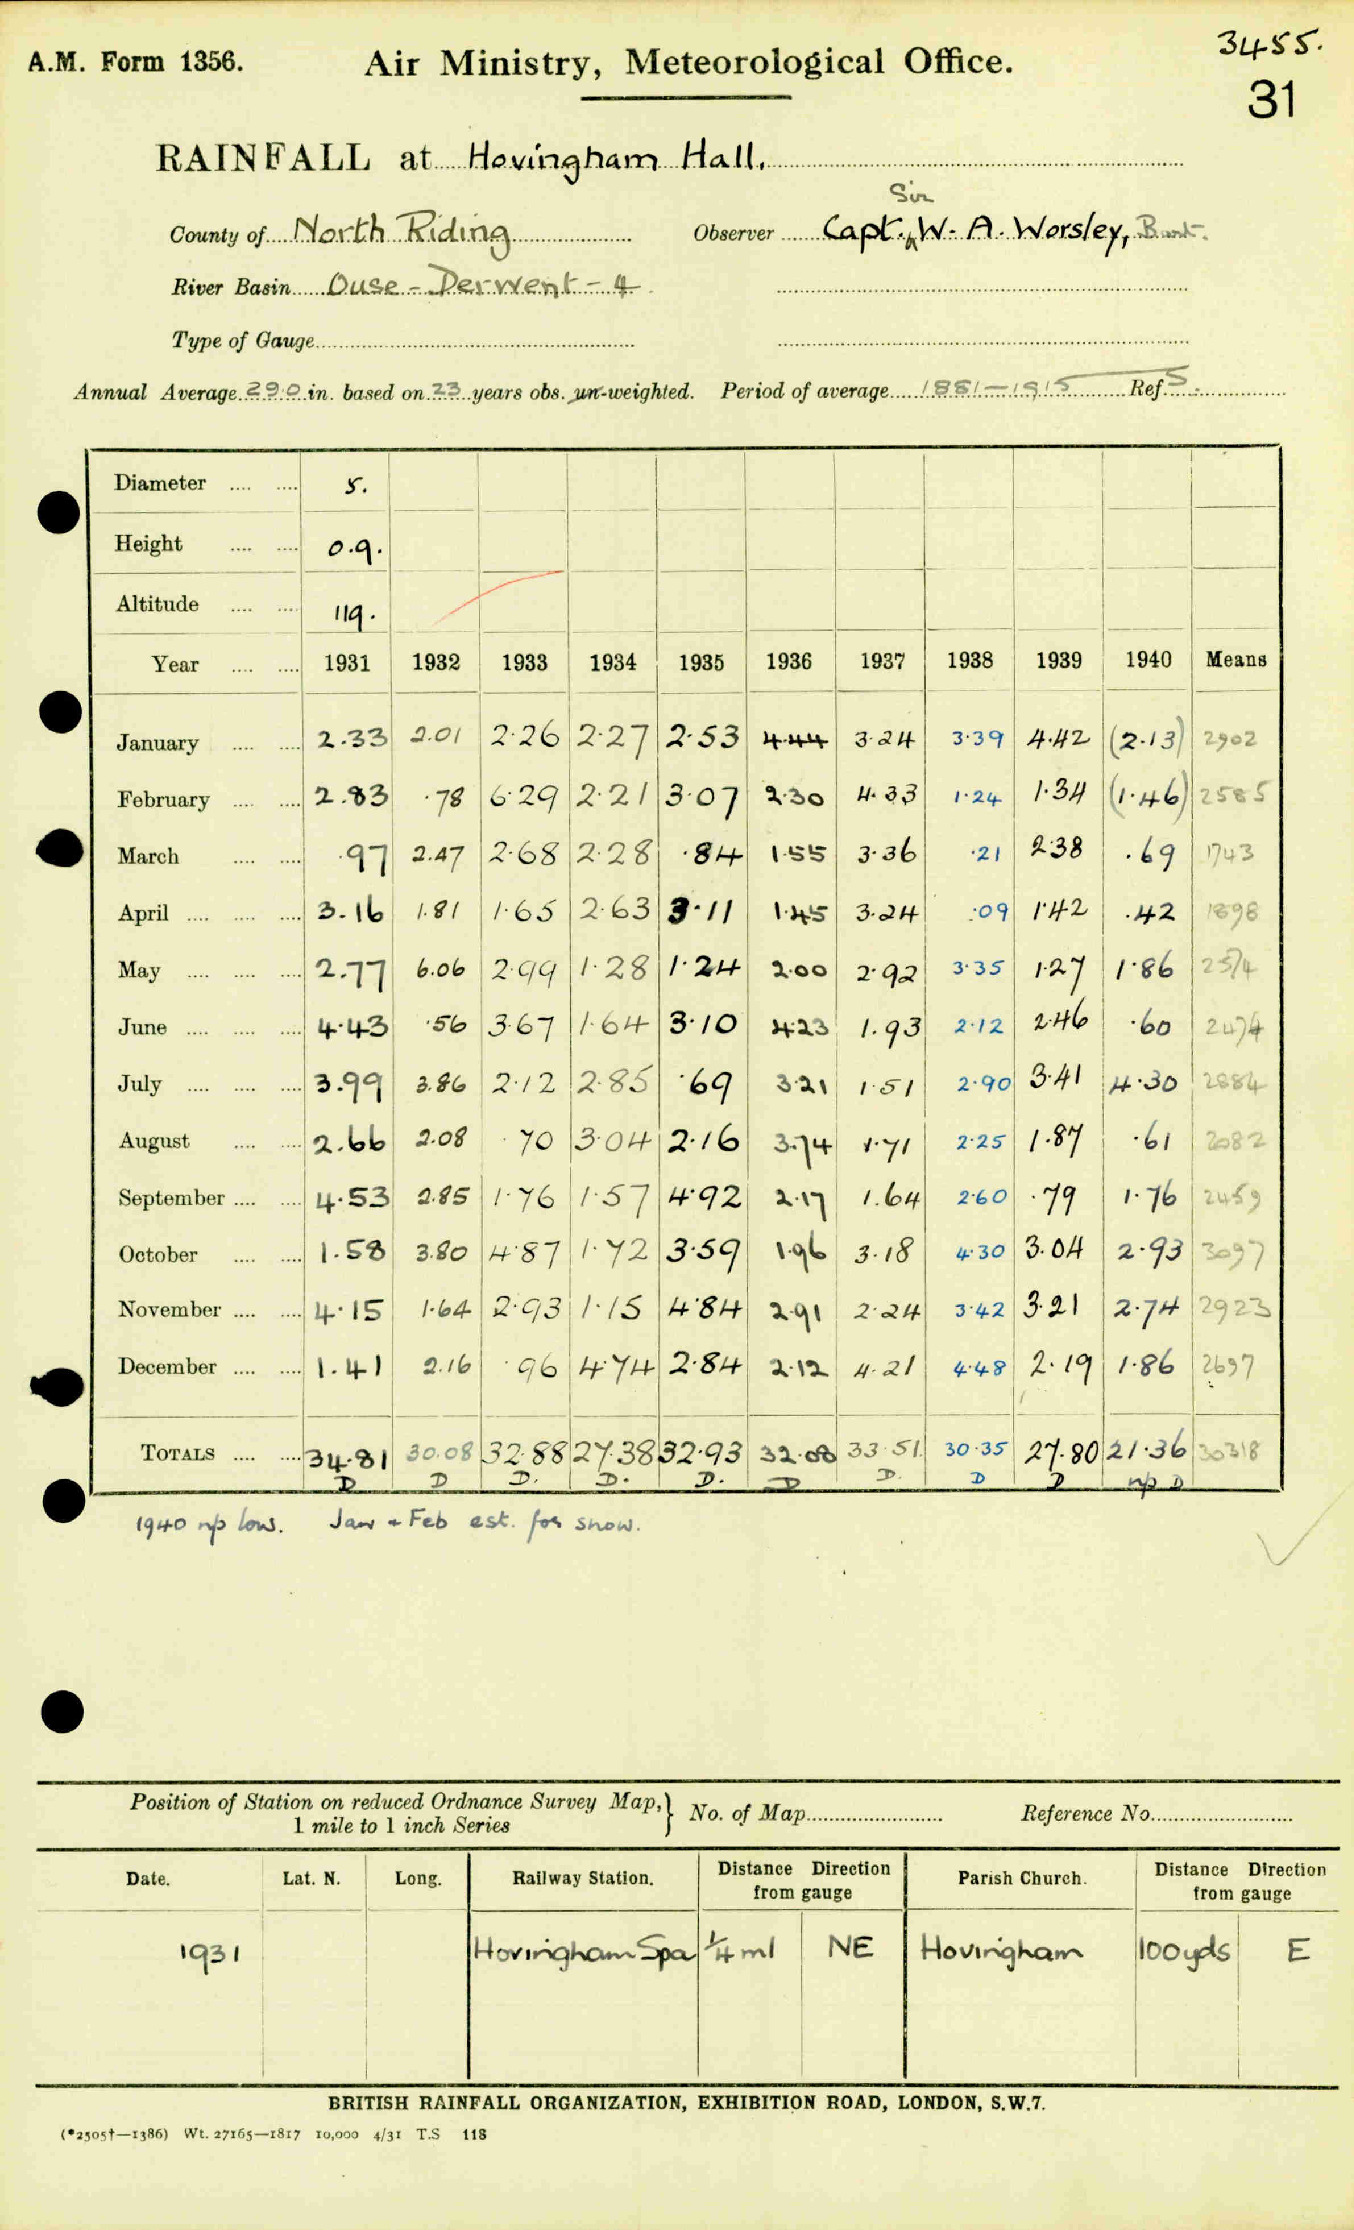 3455.
A.M. Form 1356. Air Ministry, Meteorological Office.
31
RAINFALL at Hovingham Hall.
Sir
County of North Riding Observer Capt. W. A. Worsley, Bart.
River Basin Ouse - Derwent - 4
Type of Gauge
Annual Average 29.0 in. based on 23 years obs. un-weighted. Period of average 1881-1915 Ref. S.
Diameter 5.
Height 0.9.
Altitude 119.
Year 1931 1932 1933 1934 1935 1936 1937 1938 1939 1940 Means
January 2.33 2.01 2.26 2.27 2.53 4.44 3.24 3.39 4.42 (2.13) 2902
February 2.83 .78 6.29 2.21 3.07 2.30 4.33 1.24 1.34 (1.46) 2585
March .97 2.47 2.68 2.28 .84 1.55 3.36 .21 2.38 .69 1743
April 3.16 1.81 1.65 2.63 3.11 1.45 3.24 .09 1.42 .42 1898
May 2.77 6.06 2.99 1.28 1.24 2.00 2.92 3.35 1.27 1.86 2574
June 4.43 .56 3.67 1.64 3.10 4.23 1.93 2.12 2.46 .60 2474
July 3.99 3.86 2.12 2.85 .69 3.21 1.51 2.90 3.41 4.30 2884
August 2.66 2.08 .70 3.04 2.16 3.74 1.71 2.25 1.87 .61 2082
September 4.53 2.85 1.76 1.57 4.92 2.17 1.64 2.60 .79 1.76 2459
October 1.58 3.80 4.87 1.72 3.59 1.96 3.18 4.30 3.04 2.93 3097
November 4.15 1.64 2.93 1.15 4.84 2.91 2.24 3.42 3.21 2.74 2923
December 1.41 2.16 .96 4.74 2.84 2.12 4.21 4.48 2.19 1.86 2697
TOTALS 34.81 30.08 32.88 27.38 32.93 32.08 33.51 30.35 27.80 21.36 30318
D D D. D. D. D D. D D np D
1940 np low. Jan + Feb est. for snow.
Position of Station on reduced Ordnance Survey Map, } No. of Map Reference No.
1 mile to 1 inch Series
Date. Lat. N. Long. Railway Station. Distance Direction from gauge Parish Church. Distance Direction from gauge
1931 Hovingham Spa 1/4 ml NE Hovingham 100 yds E
BRITISH RAINFALL ORGANIZATION, EXHIBITION ROAD, LONDON, S.W.7.
(*2505†—1386) Wt. 27165—1817 10,000 4/31 T.S 118